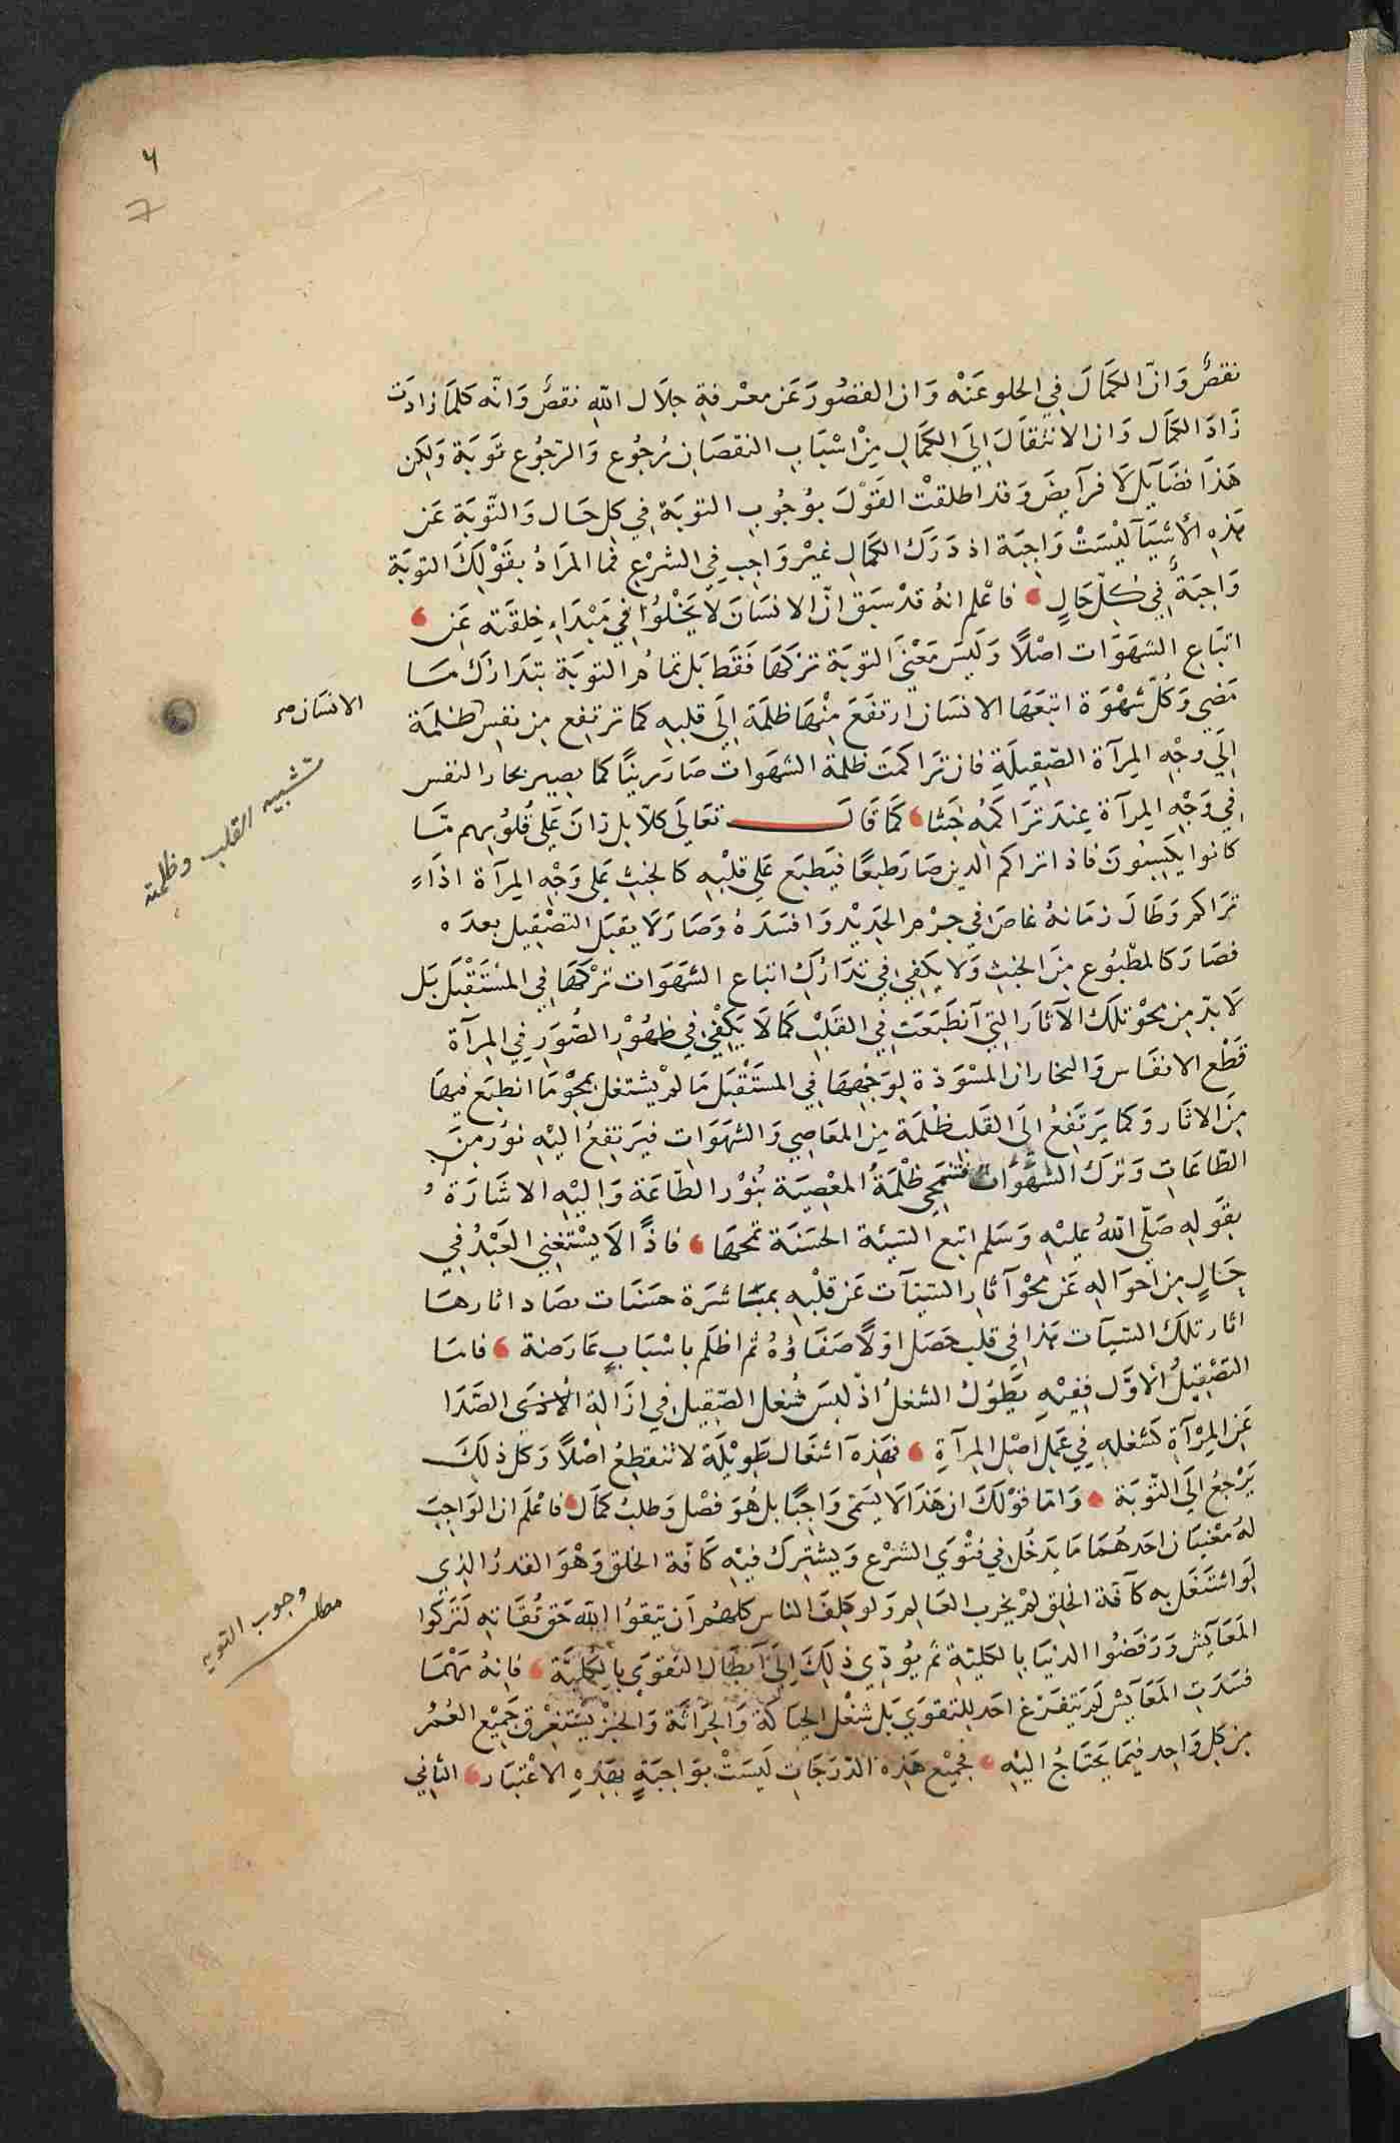 ٦
7
نقصٌ وَانّ الكمَالَ فِي الخلو عَنْه وَان القصُورَ عَن معْرفةِ جلَال اللهِ نقصٌ وَانّه كلمَا زادَت
زَادَ الكمَال وَان الانتقَالَ اِلَى الكمَالِ مِنْ اسْبَابِ النقصَان رُجُوع وَالرّجُوع تَوبَة وَلكِن
هَذَا فضَآيل لَا فرآيضَ وَقد اطلقتْ القَوْلَ بوُجُوبِ التوبَة فِي كل حَال وَالتّوبَة عَن
هَذِه الأشْيَآ ليْسَتْ وَاجِبَة اذ دَرَك الكمَالِ غيْر وَاجِب فِي الشرْعِ فمَا المرَادُ بقَوْلِكَ التوبَة
وَاجِبَةٌ فِي كلّ حَالٍ فاعْلم انهُ قدْ سبَق انّ الانسَان لَا يَخْلُوا فِي مَبْدَاءِ خِلقَته عَن
اتبَاع الشهَوَات اصْلًا وَليسَ مَعْنَى التوبَة تركهَا فَقط بَل تمامُ التوبَة بتدَارُك مَا
مَضي وَكُلّ شهْوَة اتبَعَهَا الانسَان ارتفعَ مِنْهَا ظلمَة اِلَى قلبِه كما ترتفِع مِن نفِس ظلمَة
الانسَان صـ
اِلَى وجْهِ المِرآة الصّقِيلَةِ فان تَرَاكمَت ظلمَة الشهَوات صَارَ رينًا كما يصِير بخار النفس
فِي وَجْهِ المِرآة عِندَ تَرَاكمِه خبَثا كَمَا قَالَ تعَالَي كلّا بل رَانَ عَلي قُلوُبهم مَا
تشبيه القلب وظلمته
كانوا يكسِبُونَ فاذا تراكم الرين صَارَ طبعًا فيَطبَع عَلي قلْبِه كالخبثِ عَلي وَجْهِ المِرآة اذا
تراكم وَطَالَ زمَانهُ غاصَ فِي جرْم الحَدِيْد وَافسَدَهُ وَصَارَ لَا يقبَل التصْقِيل بعدَه
فصَارَ كالمطْبُوع مِنَ الخبثِ وَلَا يكفِي فِي تدَارُك اتباع الشهَوَات ترْكهَا فِي المسْتَقْبَل بَل
لَا بدّ مِن محْو تلك الآثار التِي انطَبَعَت فِي القلبْ كمَا لَا يَكفِي فِي ظهُوْر الصُّوَر فِي المِرآة
قَطْع الانفَاس وَالبخاران المسْوَدة لِوَجْهِهَا فِي المسْتَقْبَل مَا لمْ يشتغل بمحْو مَا انطبَع فيهَا
مِنَ الاثَار وَكما يَرتَفِعُ اِلَى القَلب ظلمَة مِن المعَاصِي وَالشهَوَات فيَرتفِعُ اليْهِ نوُر مِنَ
الطّاعَاتِ وَترك الشهَوَات فتنمحِي ظلْمَةُ المعْصِيَة بنُوْر الطّاعَة وَاِليْهِ الاشَارَة
بقَولِه صَلّى اللهُ عليْهِ وَسَلم اتبع السّيئة الحسَنة تمحهَا فاذًا لَا يسْتغنِي العَبْدُ فِي
حَالٍ مِن احوَالِه عَن محْو آثار السّيئآت عَن قلبِه بمبَاشرَة حسَنات يضاد اثارهَا
اثار تلك السّيآت هَذا فِي قلب حَصَل اوّلًا صَفاؤُهُ ثم اظلَم باسْبَابٍ عَارَضة فامَا
التصْقِيلُ الأوَّل ففِيْهِ يَطُولُ الشغلُ اذ ليسَ شغل الصّقِيل فِي ازَالةِ الصَّدَا
عَن المِرْآةِ كشغلِه فِي عَمَل اصْل المِرآةِ فهَذِه آشغال طَوِيْلة لا تنقطِعُ اصْلًا وَكل ذلِكَ
يَرْجعُ اِلَى التّوبَة وَامّا قوْلكَ ان هَذَا لَا يسَمّى وَاجِبًا بل هُوَ فضْل وَطلبُ كمَال فاعْلَم ان الوَاجِبَ
لهُ معْنيَان احَدهُمَا مَا يدخُل فِي فتْوَي الشرْع وَيشْتِركُ فيْه كَافّة الخلق وَهْوَ القدرُ الذِي
لوَ اشتغَل بِه كآفّة الخلق لمْ يخرب العَالم وَلو كلِفَ الناس كلهُم اَن يتقوُا اللهَ حَق تُقَاتِه لتَركوا
وجوب التوبه
مطلب
المعَآيش وَرَفضُوا الدنيَا بالكليّةِ ثم يُؤدِّي ذلِكَ اِلَى اَبطَال التقوَى بالِكُليَّة فانهُ مَهْمَا
فسَدَتِ المعَآيش لَم يتفرّغ احَد للتقوَي بَل شغل الحِيَاكة وَالحِرَاثَة وَالخبْز يسْتغرق جَمِيْع العُمُر
مِن كل وَاحِد فيمَا يَحتَاجُ اليْهِ فجمِيْع هَذِه الدّرَجَاتِ ليسَتْ بوَاجِبَةٍ بهَذِهِ الاعْتبَار الثاني